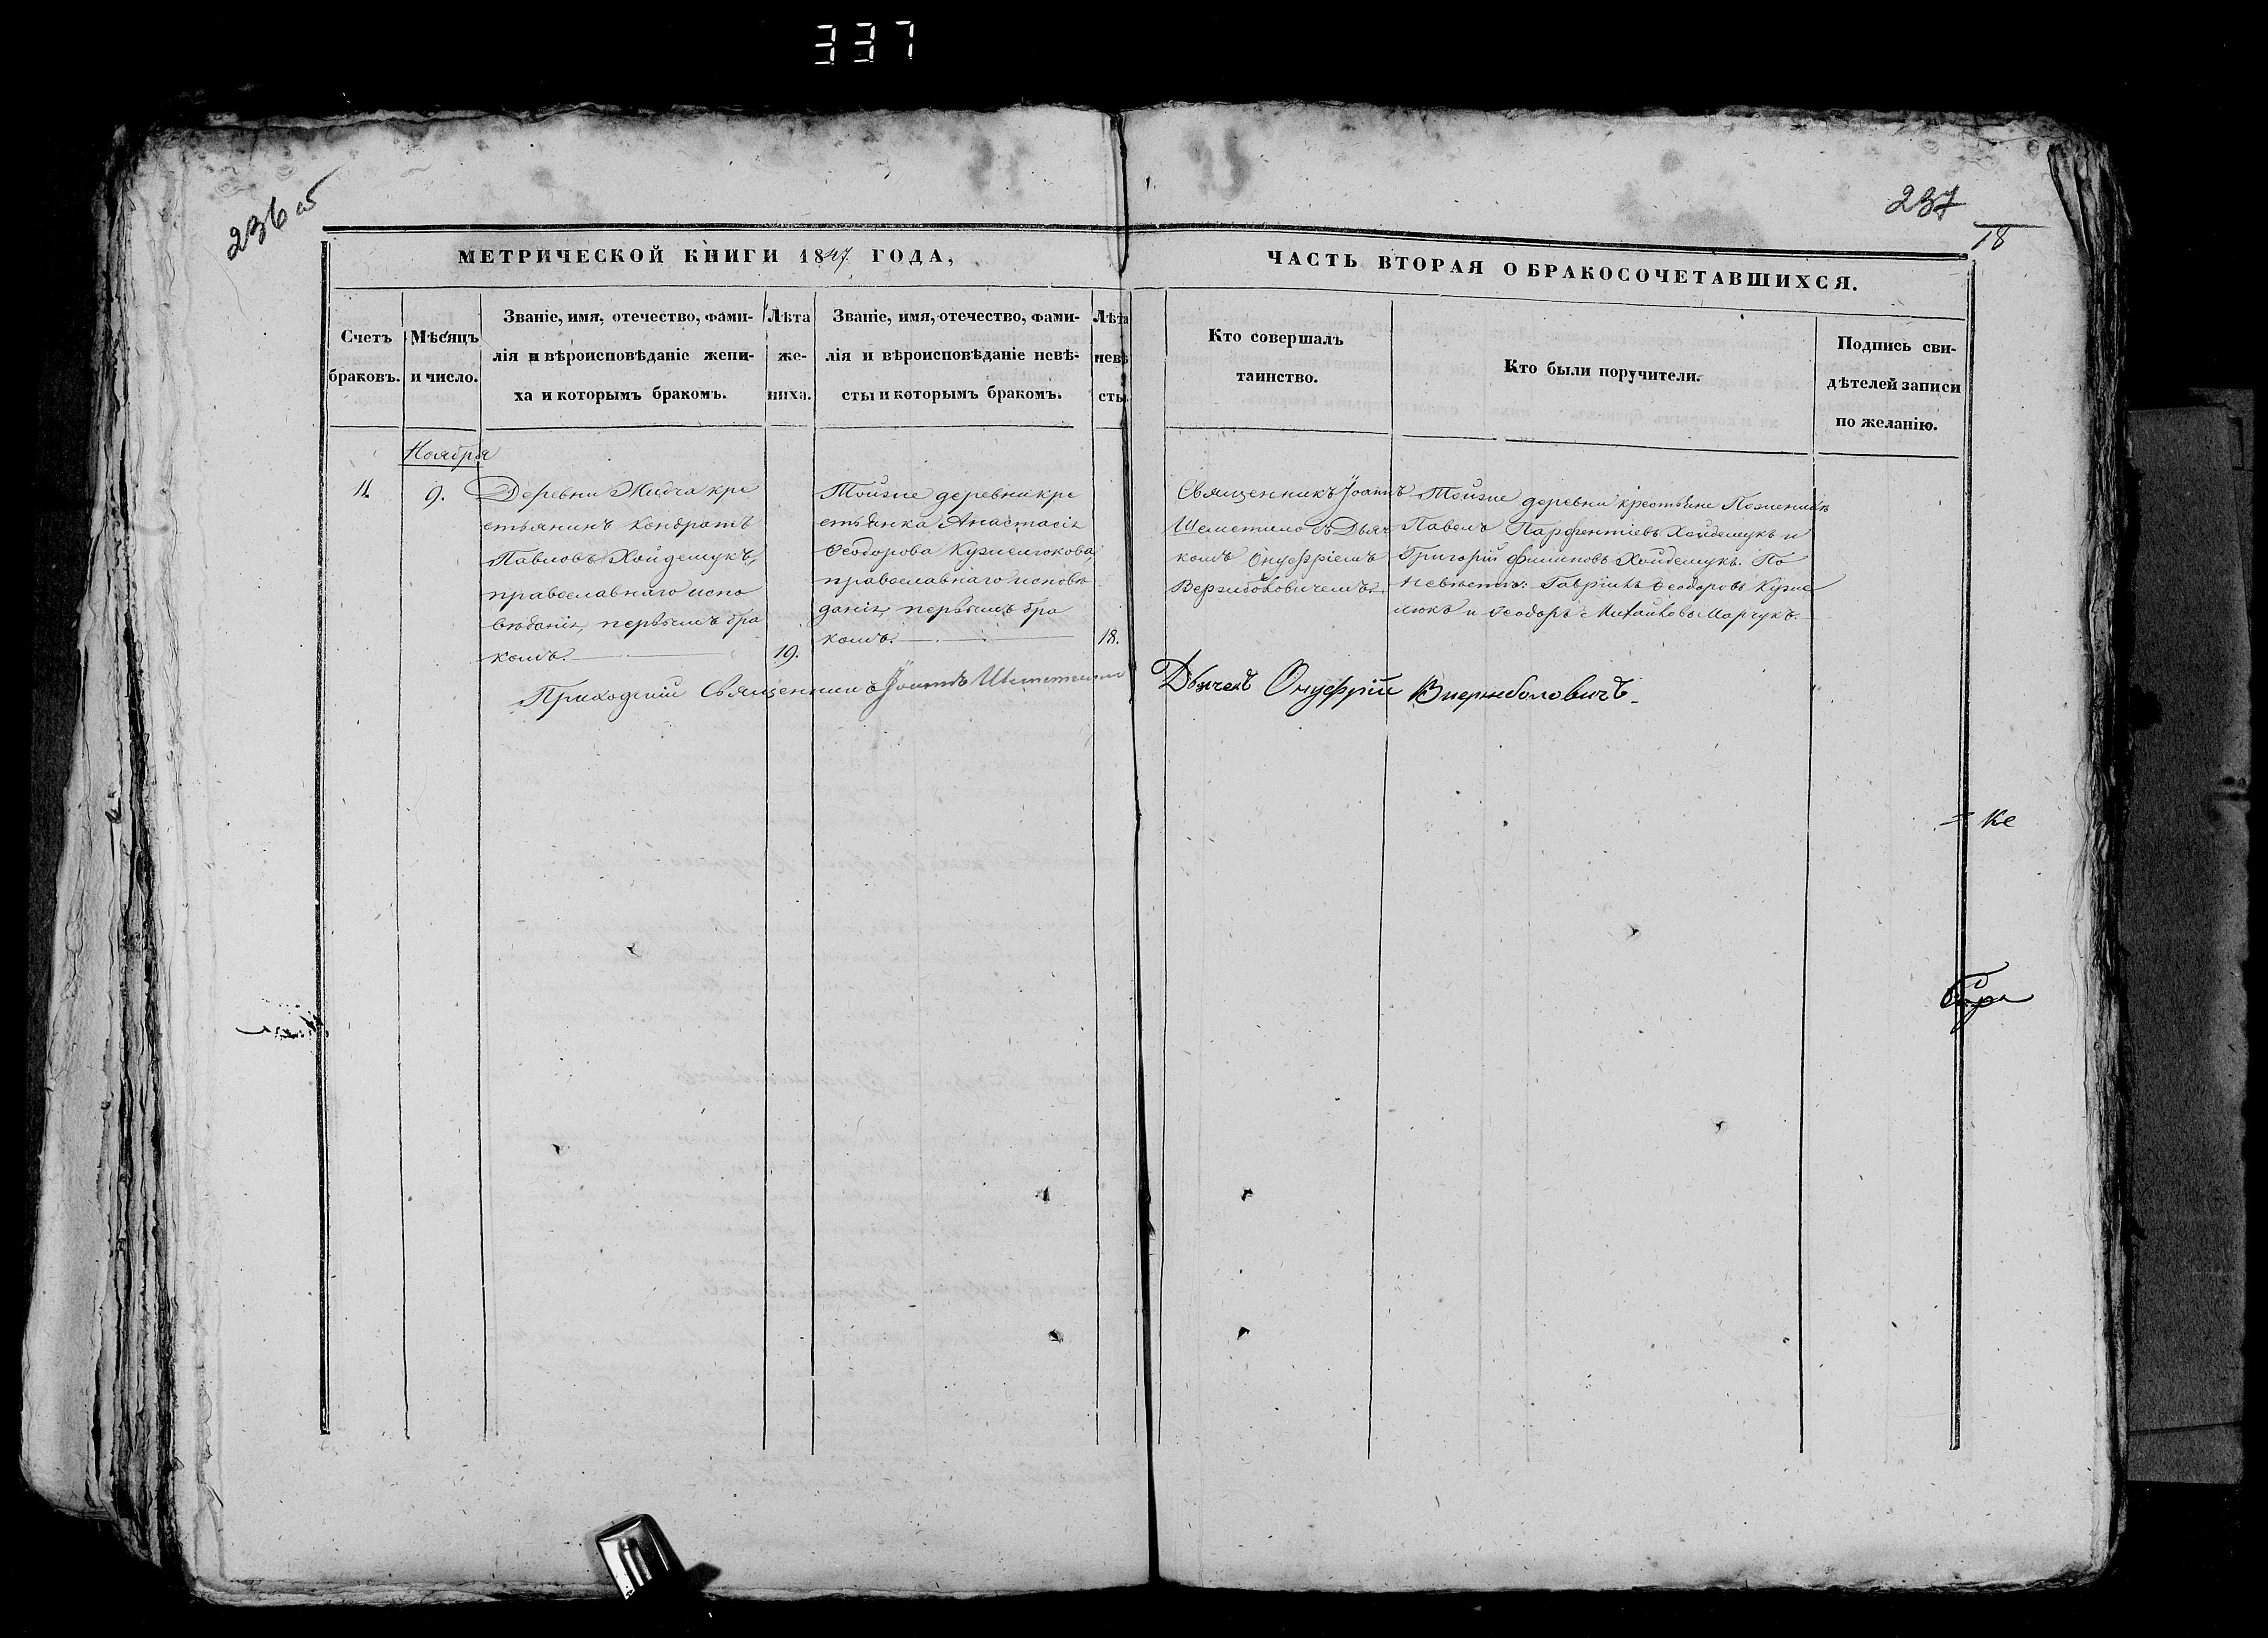 337
236 об
237
18
МЕТРИЧЕСКОЙ КНИГИ 1847 ГОДА,
ЧАСТЬ ВТОРАЯ О БРАКОСОЧЕТАВШИХСЯ.
Счетъ
браковъ.
Мѣсяцъ
и число.
Званіе, имя, отечество, фами-
лія и вѣроисповѣданіе жени-
ха и которымъ бракомъ.
Лѣта
же-
ниха.
Званіе, имя, отечество, фами-
лія и вѣроисповѣданіе невѣ-
сты и которымъ бракомъ.
Лѣта
невѣ
сты.
Кто совершалъ
таинство.
Кто были поручители.
Подпись сви-
дѣтелей записи
по желанію.
Ноября
11.
9.
Деревни Жидча кре
стьянинъ Кондратъ
Павловъ Хойдемукъ,
православнаго испо
вѣданія, первымъ бра
комъ.
19.
Тойже деревни кре
стьянка Анастасія
Ѳеодорова Кужелюкова,
православнаго исповѣ
данія, первымъ бра
комъ.
18.
Священникъ Іоаннъ
Шеметило съ Дьяч
комъ Онуфріемъ
Вержболовичемъ.
Тойже деревни крестьяне По женихѣ
Павелъ Парфентіевъ Хойдемукъ и
Григорій Филиповъ Хойдемукъ. По
невѣстѣ: Гавріилъ Ѳеодоровъ Куже
люкъ и Ѳеодоръ Михайловъ Марчукъ.
Приходскій Священникъ Іоаннъ Шеметило
Дьячекъ Онуфрій Вержболовичъ.
ке